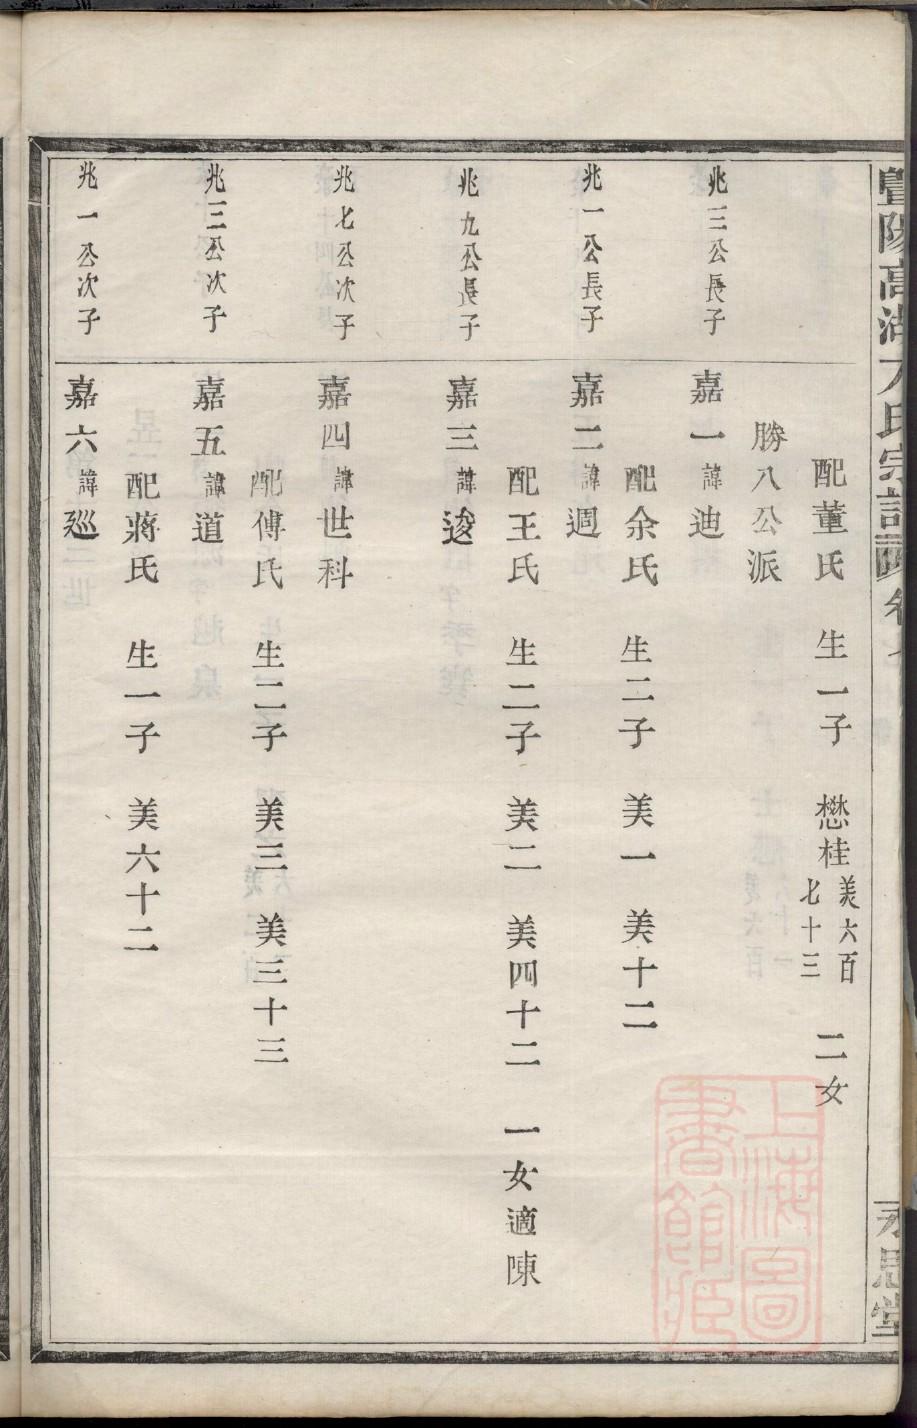 暨陽高湖方氏宗譜 卷七
永思堂
配董氏 生一子 懋桂 美六百七十三 二女
勝八公派
兆三公長子
嘉一 諱 迪
配余氏 生二子 美一 美十二
兆一公長子
嘉二 諱 週
配王氏 生二子 美二 美四十二 一女適陳
兆九公長子
嘉三 諱 逡
兆七公次子
嘉四 諱 世科
配傅氏 生二子 美三 美三十三
兆三公次子
嘉五 諱 道
配蔣氏 生一子 美六十二
兆一公次子
嘉六 諱 廵
上海圖書館藏